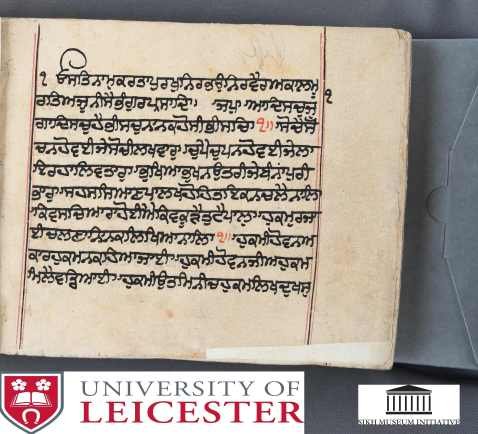 ੧ ਓ ਸਤਿਨਾਮੁਕਰਤਾਪੁਰਖੁਨਿਰਭਉਨਿਰਵੈਰੁਅਕਾਲਮੂ
ਰਤਿਅਜੂਨੀਸੈਭੰਗੁਰਪ੍ਰਸਾਦਿ॥ ਜਪੁ॥ ਆਦਿਸਚੁਜੁ ੧
ਗਾਦਿਸਚੁਹੈਭੀਸਚੁਨਾਨਕਹੋਸੀਭੀਸਚਿ॥ ੧॥ ਸੋਚੈਸੋ
ਚਨਹੋਵਈਜੇਸੋਚੀਲਖਵਾਰ॥ਚੁਪੈਚੁਪਨਹੋਵਈਜੇਲਾ
ਇਰਹਾਲਿਵਤਾਰ॥ਭੁਖਿਆਭੁਖਨਉਤਰੀਜੇਬੰਨਾਂਪੁਰੀ
ਭਾਰ॥ਸਹਸਸਿਆਣਪਾਲਖਹੋਹਿਤਇਕਨਚਲੈਨਾਲਿ
॥ਕਿਵਸਚਿਆਰਾਹੋਈਐਕਿਵਕੂੜੈਤੁਟੈਪਾਲਿ॥ਹੁਕਮਿਰਜਾ
ਈਚਲਣਾਨਾਨਕਲਿਖਿਆਨਾਲਿ॥ ੧॥ਹੁਕਮੀਹੋਵਨਆ
ਕਾਰਹੁਕਮਨਕਹਿਆਜਾਈ॥ਹੁਕਮੀਹੋਵਨਜੀਅਹੁਕਮ
ਮਿਲੈਵਡਿਆਈ॥ਹੁਕਮੀਉਤਮਿਨੀਚਹੁਕਮਲਿਖਦੁਖਸੁ
UNIVERSITY OF
LEICESTER
SIKH MUSEUM INITIATIVE